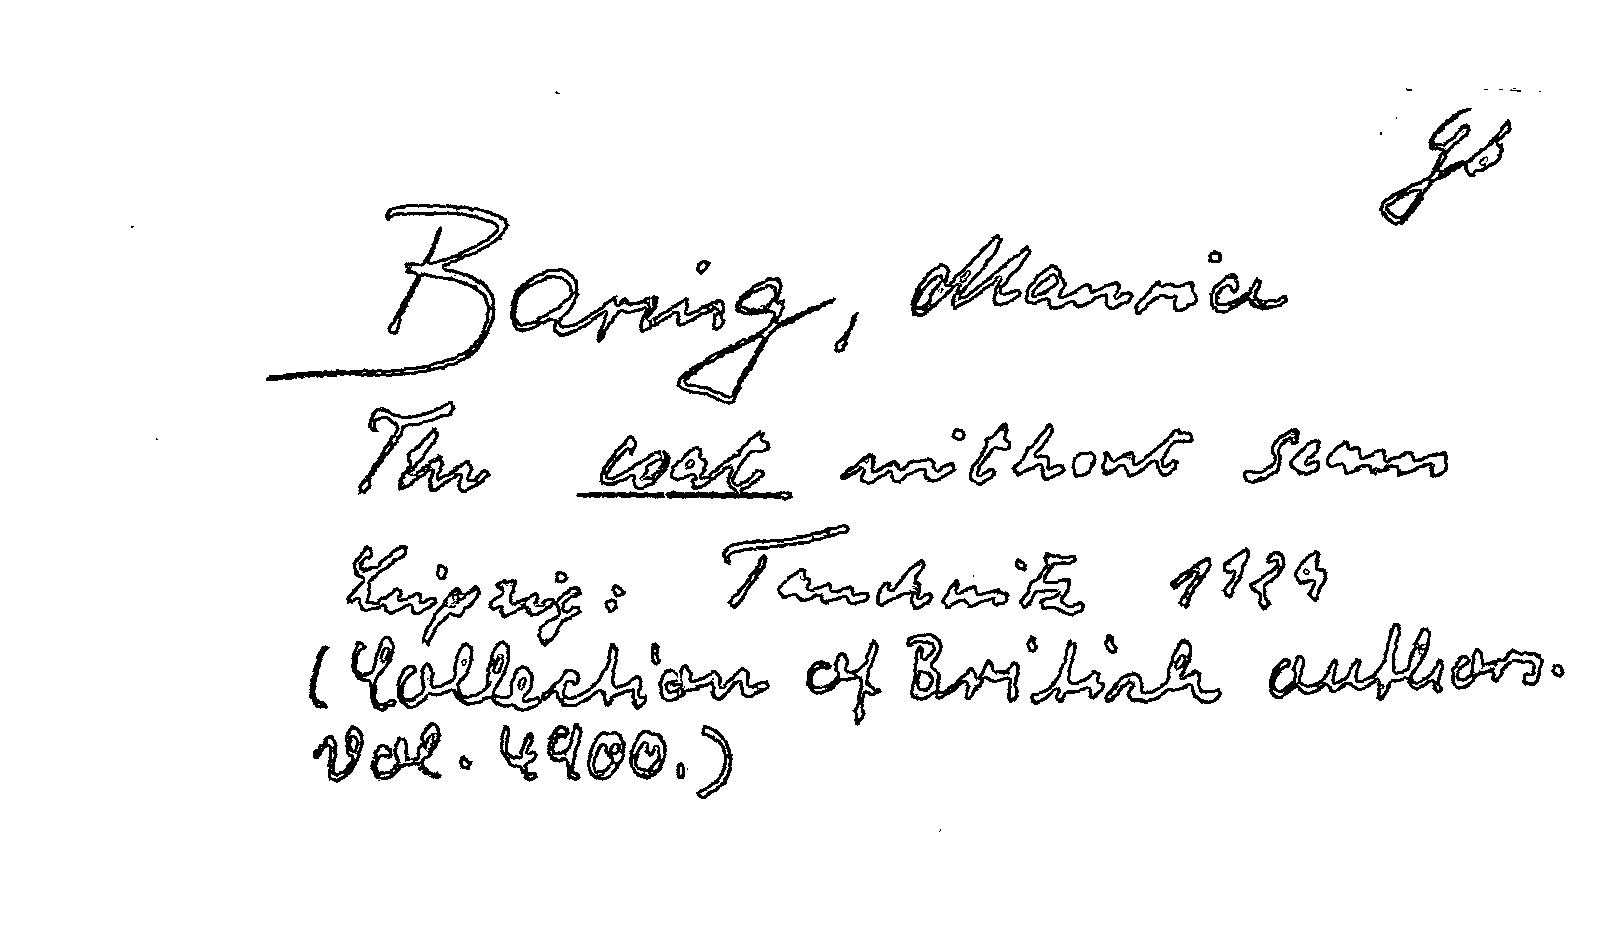 gs
Baring, Maurice
The coat without seam
Leipzig: Tauchnitz 1929
(Collection of British authors.
Vol. 4900.)